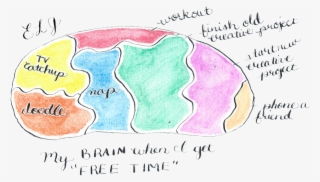 ELJ
workout
finish old
creative project
start new
creative
project
TV
catchup
nap
doodle
phone a
friend
My BRAIN when I get
"FREE TIME"